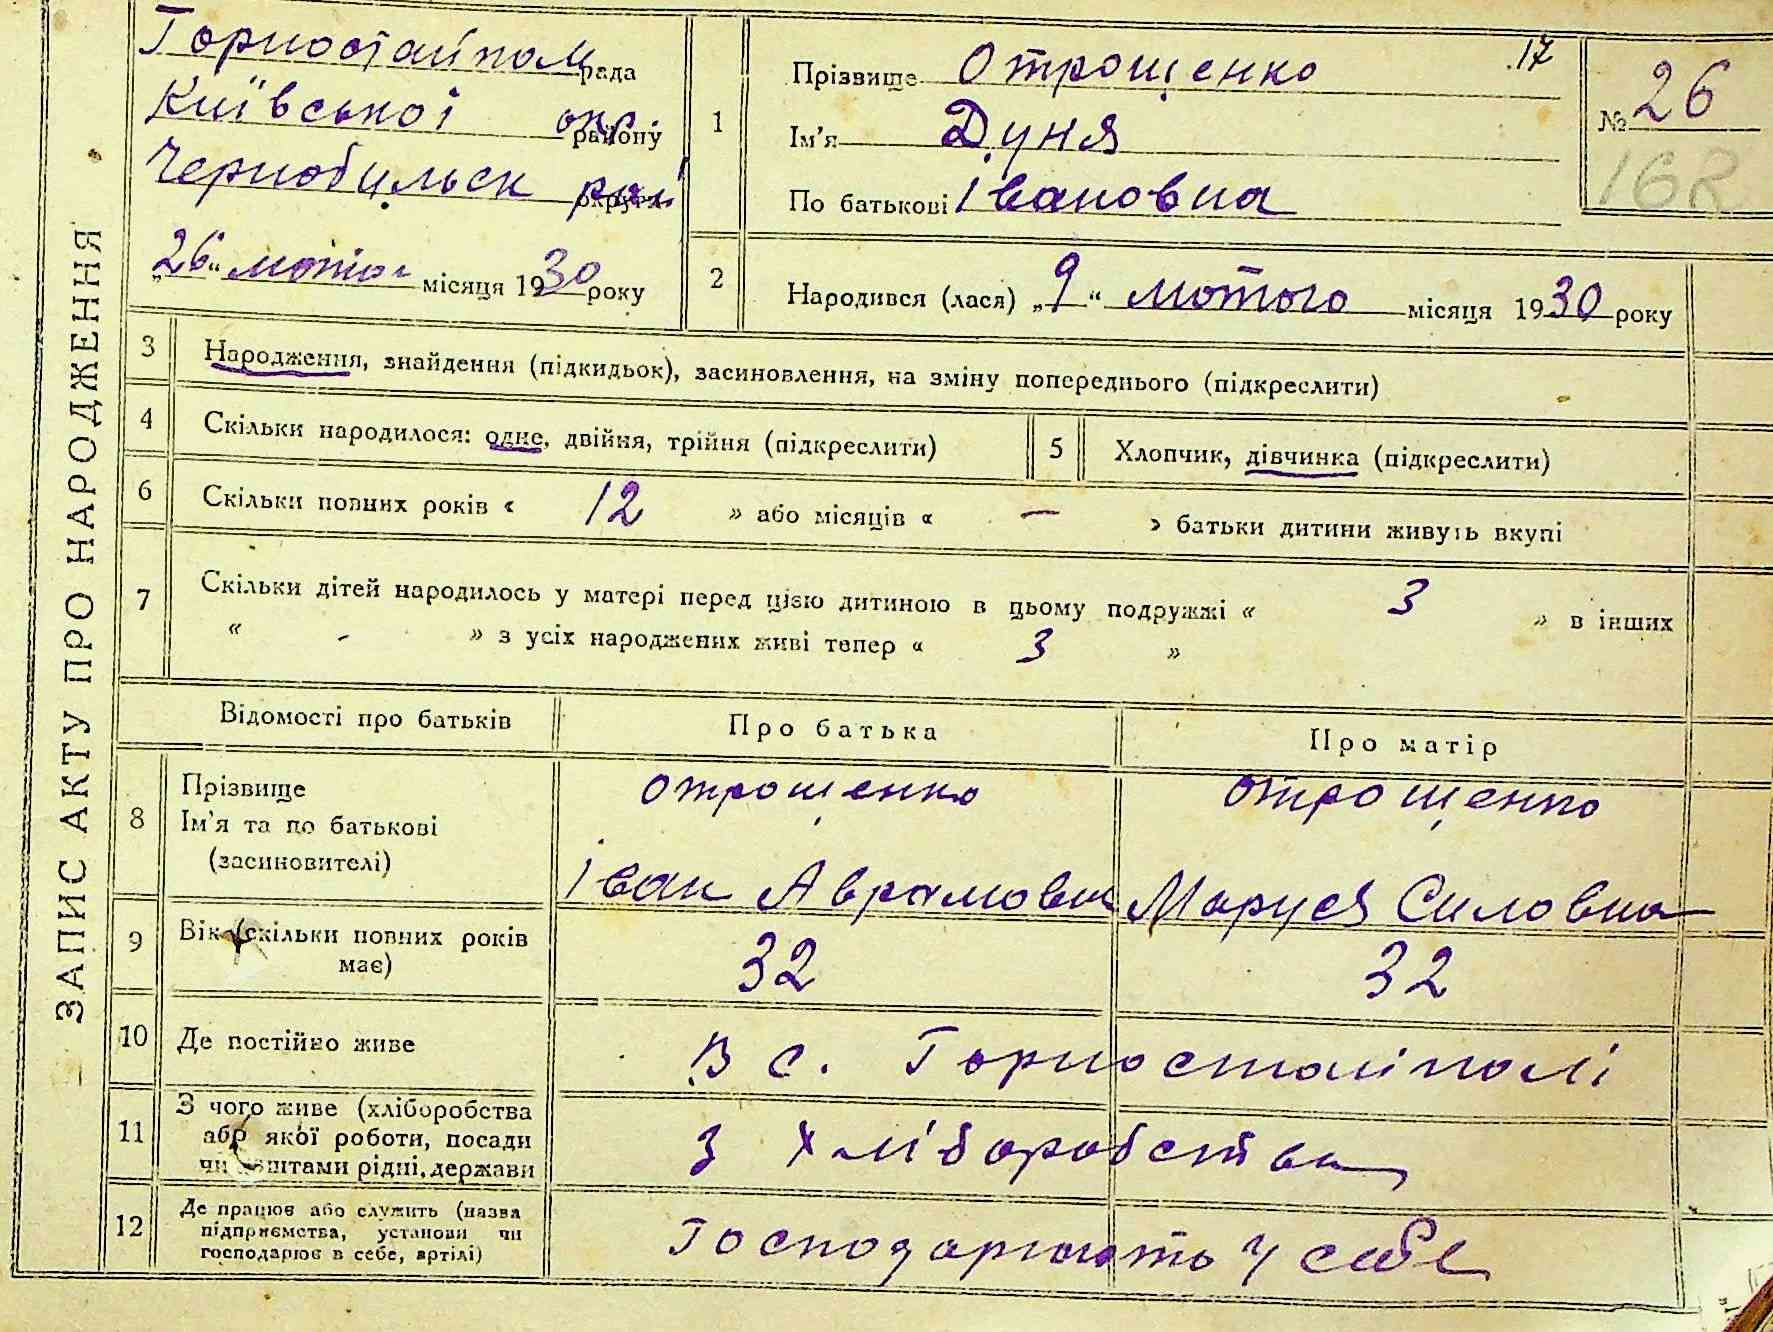 ЗАПИС АКТУ ПРО НАРОДЖЕННЯ
Горностайпол рада
Київської окр. району
Чернобильськ рай округи
„26“ лютого місяця 1930 року
1
Прізвище Отрощенко
Ім'я Дуня
По батькові Івановна
17
№ 26
162
2
Народився (лася) „9“ лютого місяця 1930 року
3
Народження, знайдення (підкидьок), засиновлення, на зміну попереднього (підкреслити)
4
Скільки народилося: одне, двійня, трійня (підкреслити)
5
Хлопчик, дівчинка (підкреслити)
6
Скільки повних років « 12 » або місяців « — » батьки дитини живуть вкупі
7
Скільки дітей народилось у матері перед цією дитиною в цьому подружжі « 3 » в інших
« - » з усіх народжених живі тепер « 3 »
Відомості про батьків
Про батька
Про матір
8
Прізвище
Ім'я та по батькові
(засиновителі)
Отрощенко
Іван Аврамович
Отрощенко
Маруся Силовна
9
Вік (скільки повних років
має)
32
32
10
Де постійно живе
В с. Горностайполі
11
З чого живе (хліборобства
або якої роботи, посади
чи коштами рідні, держави
З хліборобства
12
Де працює або служить (назва
підприємства, установи чи
господарює в себе, артілі)
Господарюють у себе